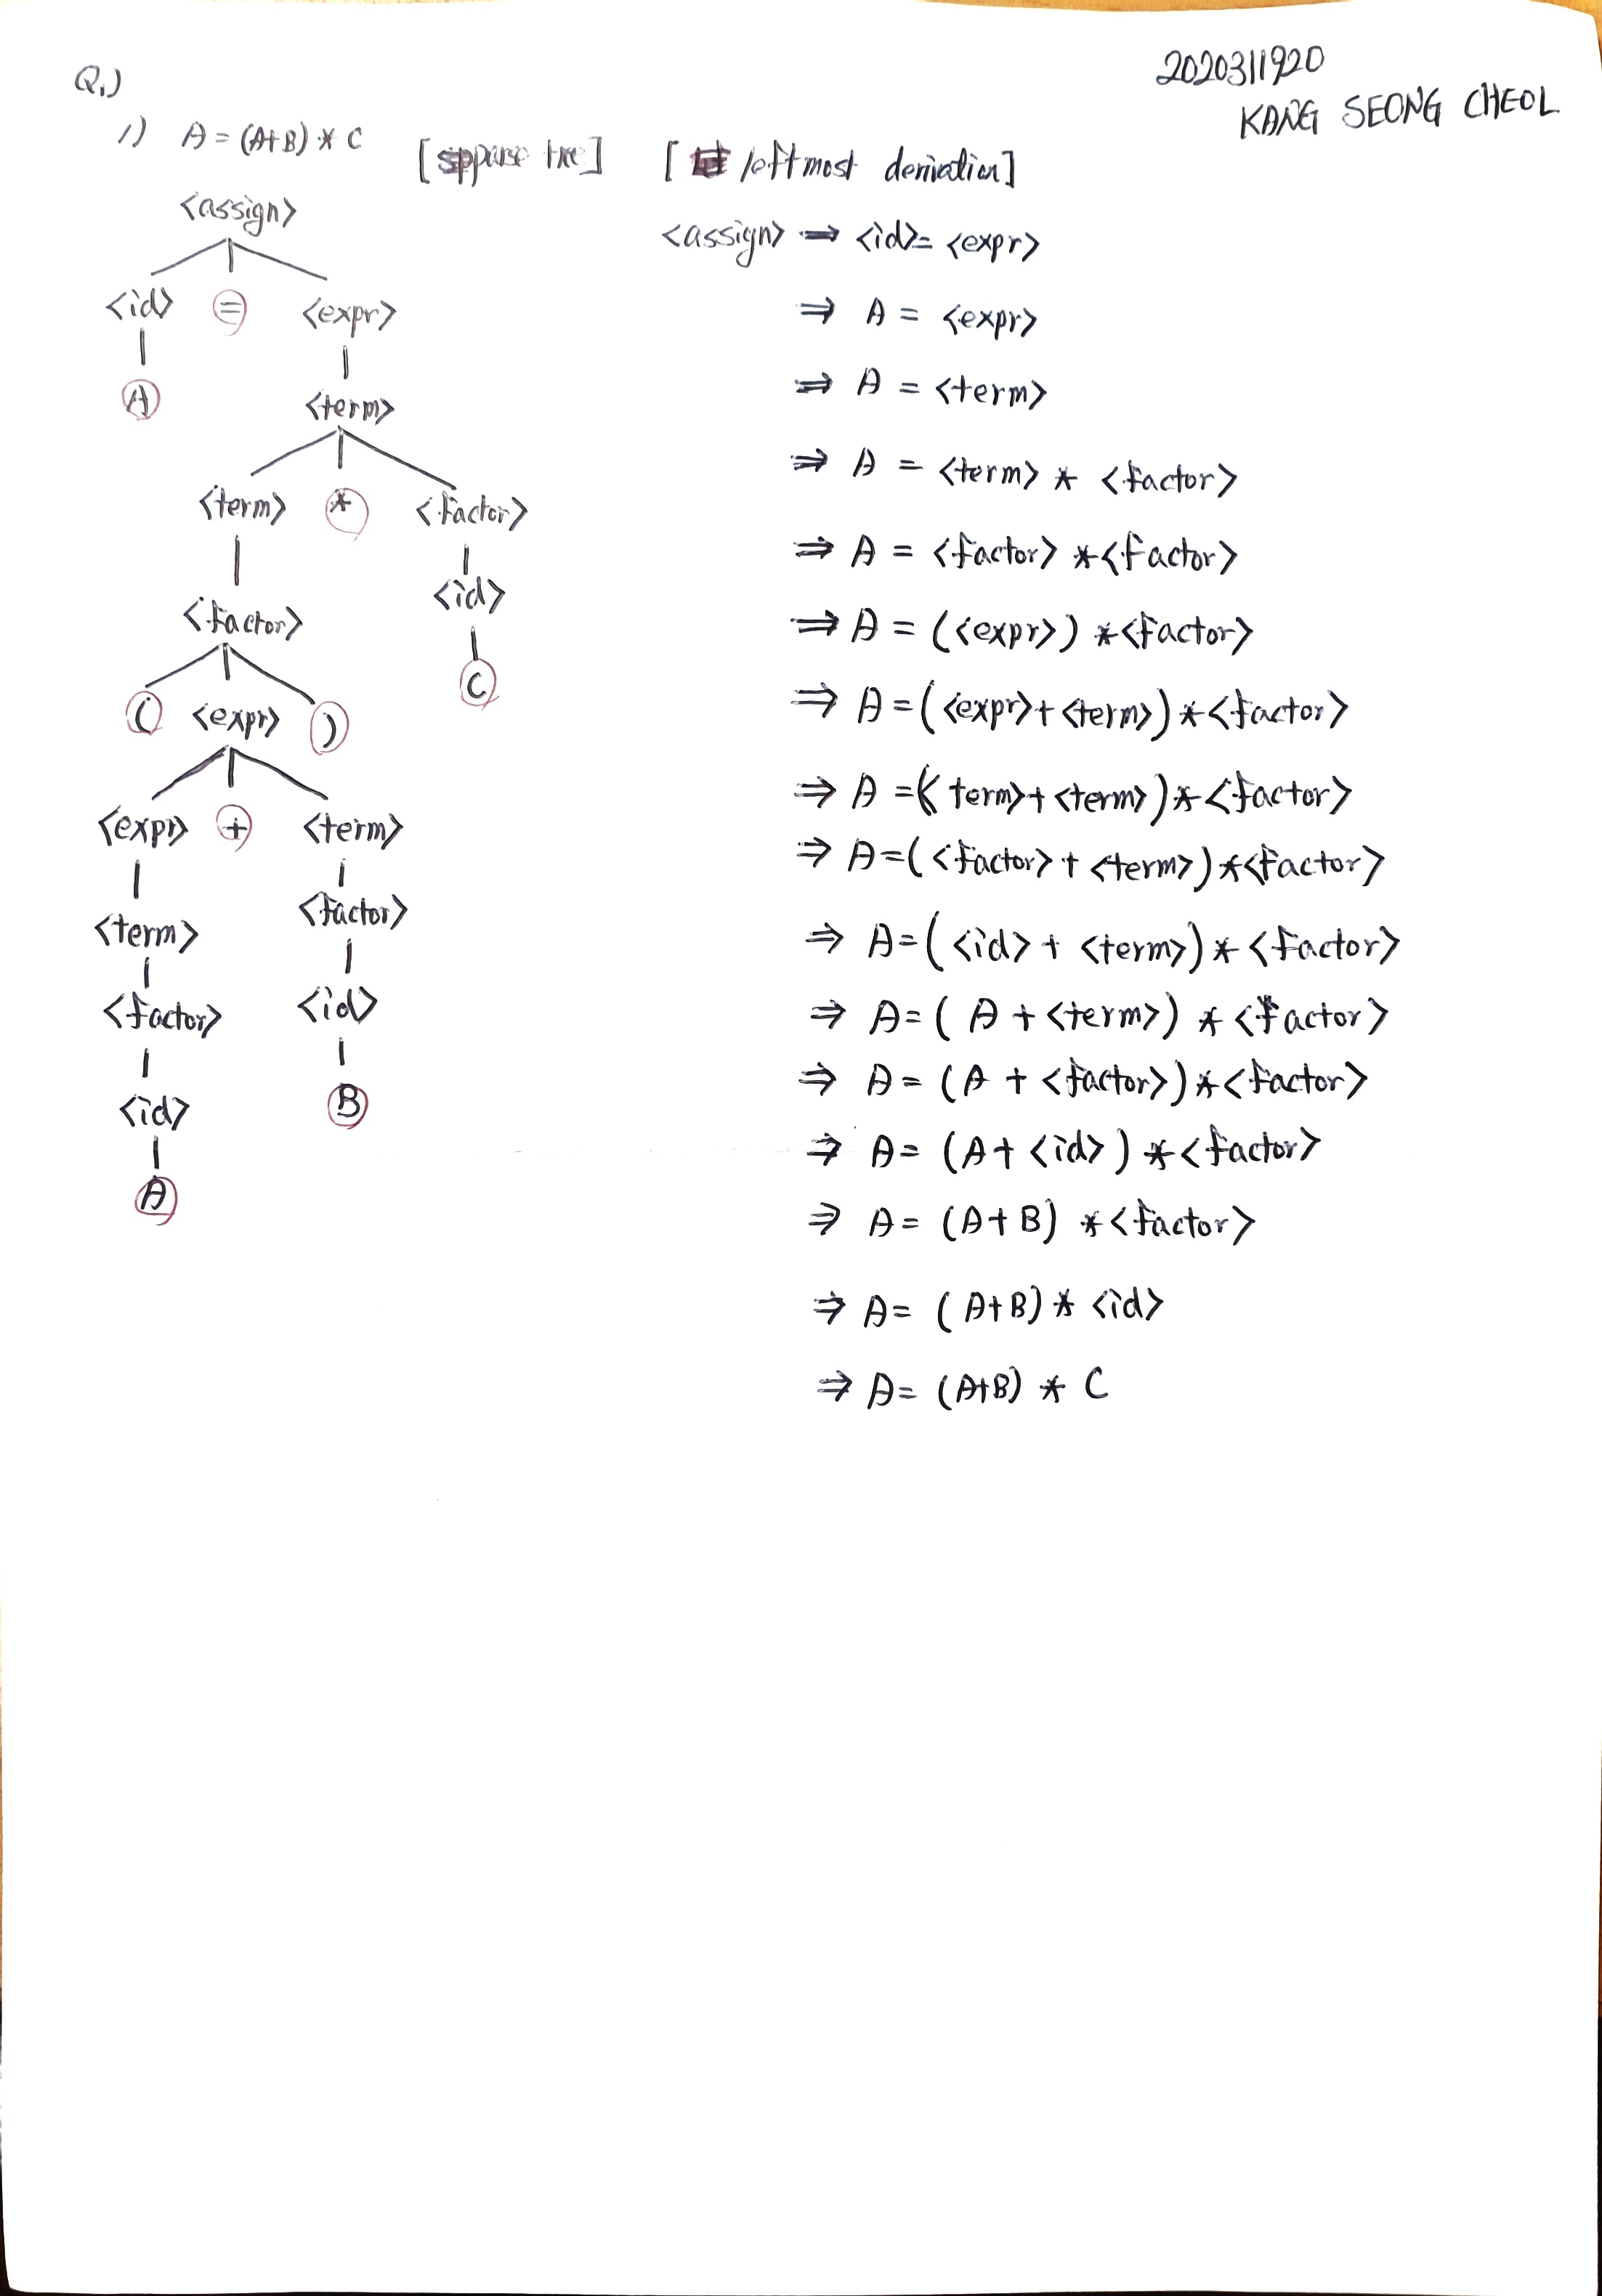 Q.)
2020311920
KANG SEONG CHEOL
1) A = (A+B) * C
[parse tree]
<assign>
<id> = <expr>
A
<term>
<term> * <factor>
<factor> <id>
C
( <expr> )
<expr> + <term>
<term> <factor>
<factor> <id>
<id> B
A
[leftmost derivation]
<assign> ⇒ <id> = <expr>
⇒ A = <expr>
⇒ A = <term>
⇒ A = <term> * <factor>
⇒ A = <factor> * <factor>
⇒ A = (<expr>) * <factor>
⇒ A = (<expr> + <term>) * <factor>
⇒ A = (<term> + <term>) * <factor>
⇒ A = (<factor> + <term>) * <factor>
⇒ A = (<id> + <term>) * <factor>
⇒ A = (A + <term>) * <factor>
⇒ A = (A + <factor>) * <factor>
⇒ A = (A + <id>) * <factor>
⇒ A = (A + B) * <factor>
⇒ A = (A+B) * <id>
⇒ A = (A+B) * C